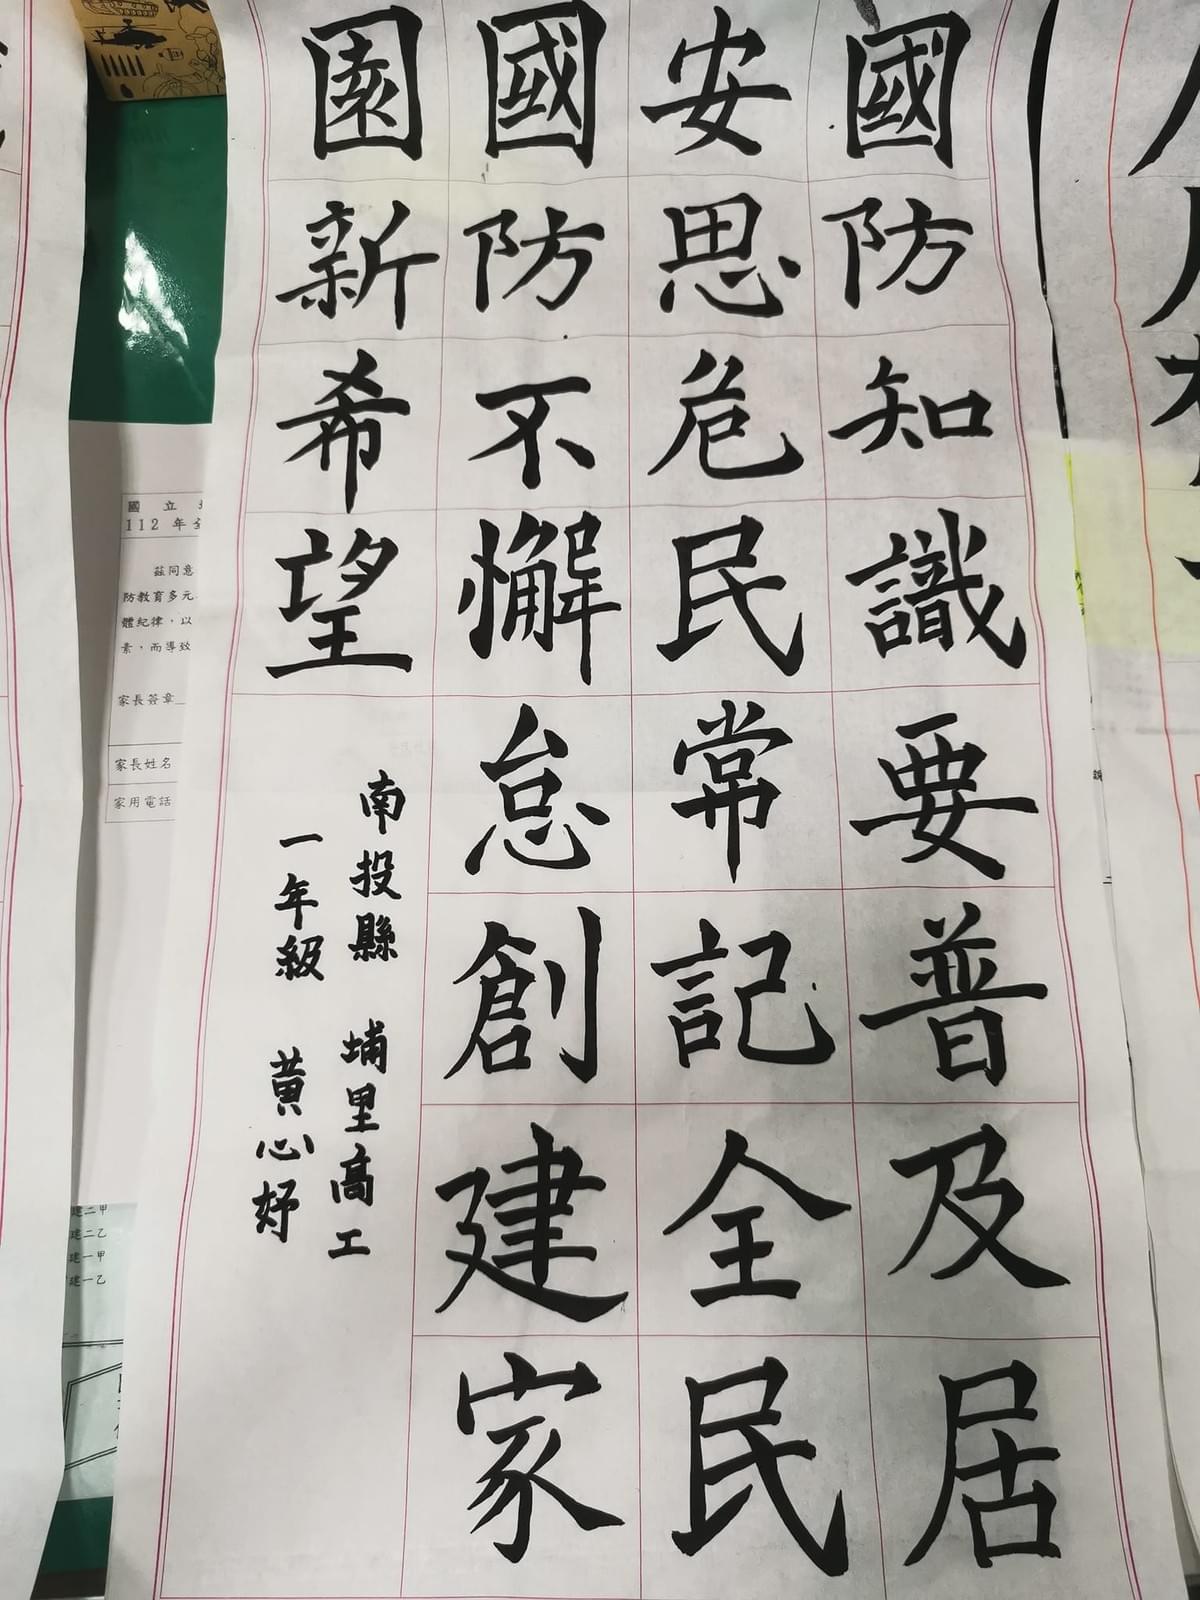 國防知識要普及居
安思危民常記全民
國防不懈怠創建家
園新希望
南投縣 埔里高工
一年級 黃心妤
國立
112年全
茲同意
防教育多元
體紀律，以
素，而導致
家長簽章
家長姓名
家用電話
建二甲
建二乙
建一甲
建一乙